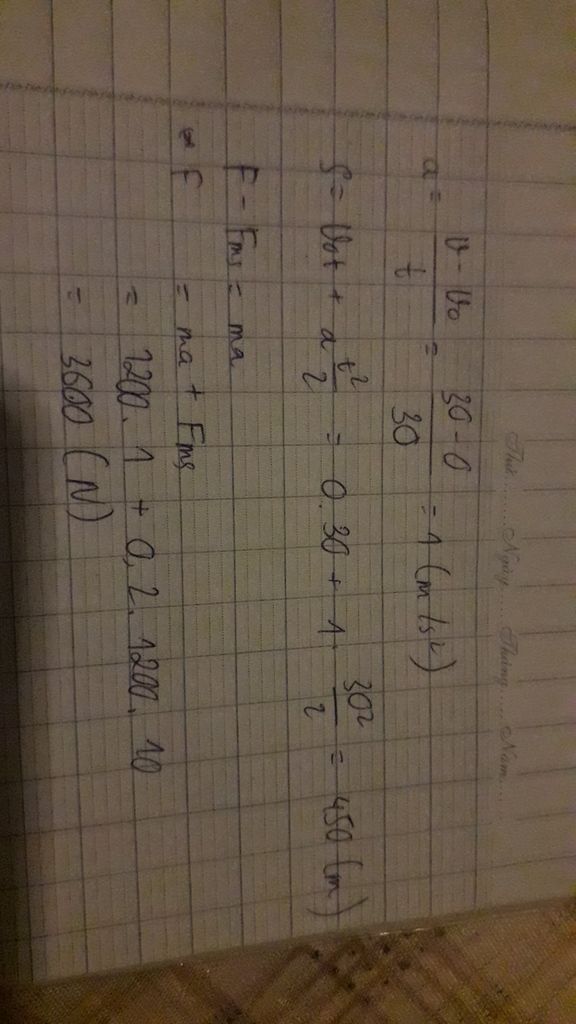 Thứ ........ Ngày ..... Tháng ...... Năm.....
a = \frac{v - v_0}{t} = \frac{30 - 0}{30} = 1 (m/s²)
S = v_0t + a \frac{t²}{2} = 0.30 + 1. \frac{30²}{2} = 450 (m)
F - F_{ms} = ma
⇔ F = ma + F_{ms}
= 1200. 1 + 0,2. 1200. 10
= 3600 (N)